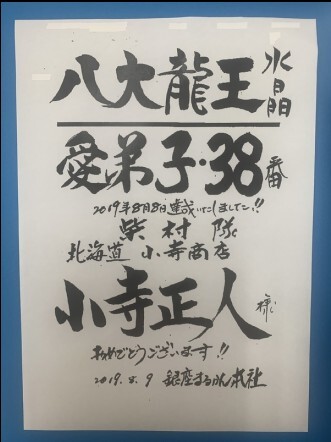 八大龍王 水晶
愛弟子・38番
2019年8月8日達成いたしました!!
柴村隊
北海道 小寺商店
小寺正人様
おめでとうございます!!
2019.8.9 銀座まるかん本社